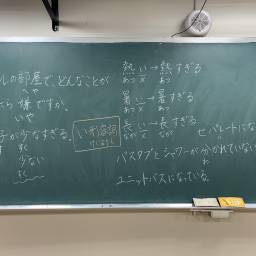 ルの部屋で、どんなことが
へや
たら嫌ですか。
いや
子が少なすぎる。
すく
少ない
すく
い形容詞
けいようし
熱い→熱すぎる
あつ あつ
暑い→暑すぎる
あつ あつ
長い→長すぎる
なが なが
セパレートにな
バスタブとシャワーが分かれていない
わ
ユニットバスになっている。